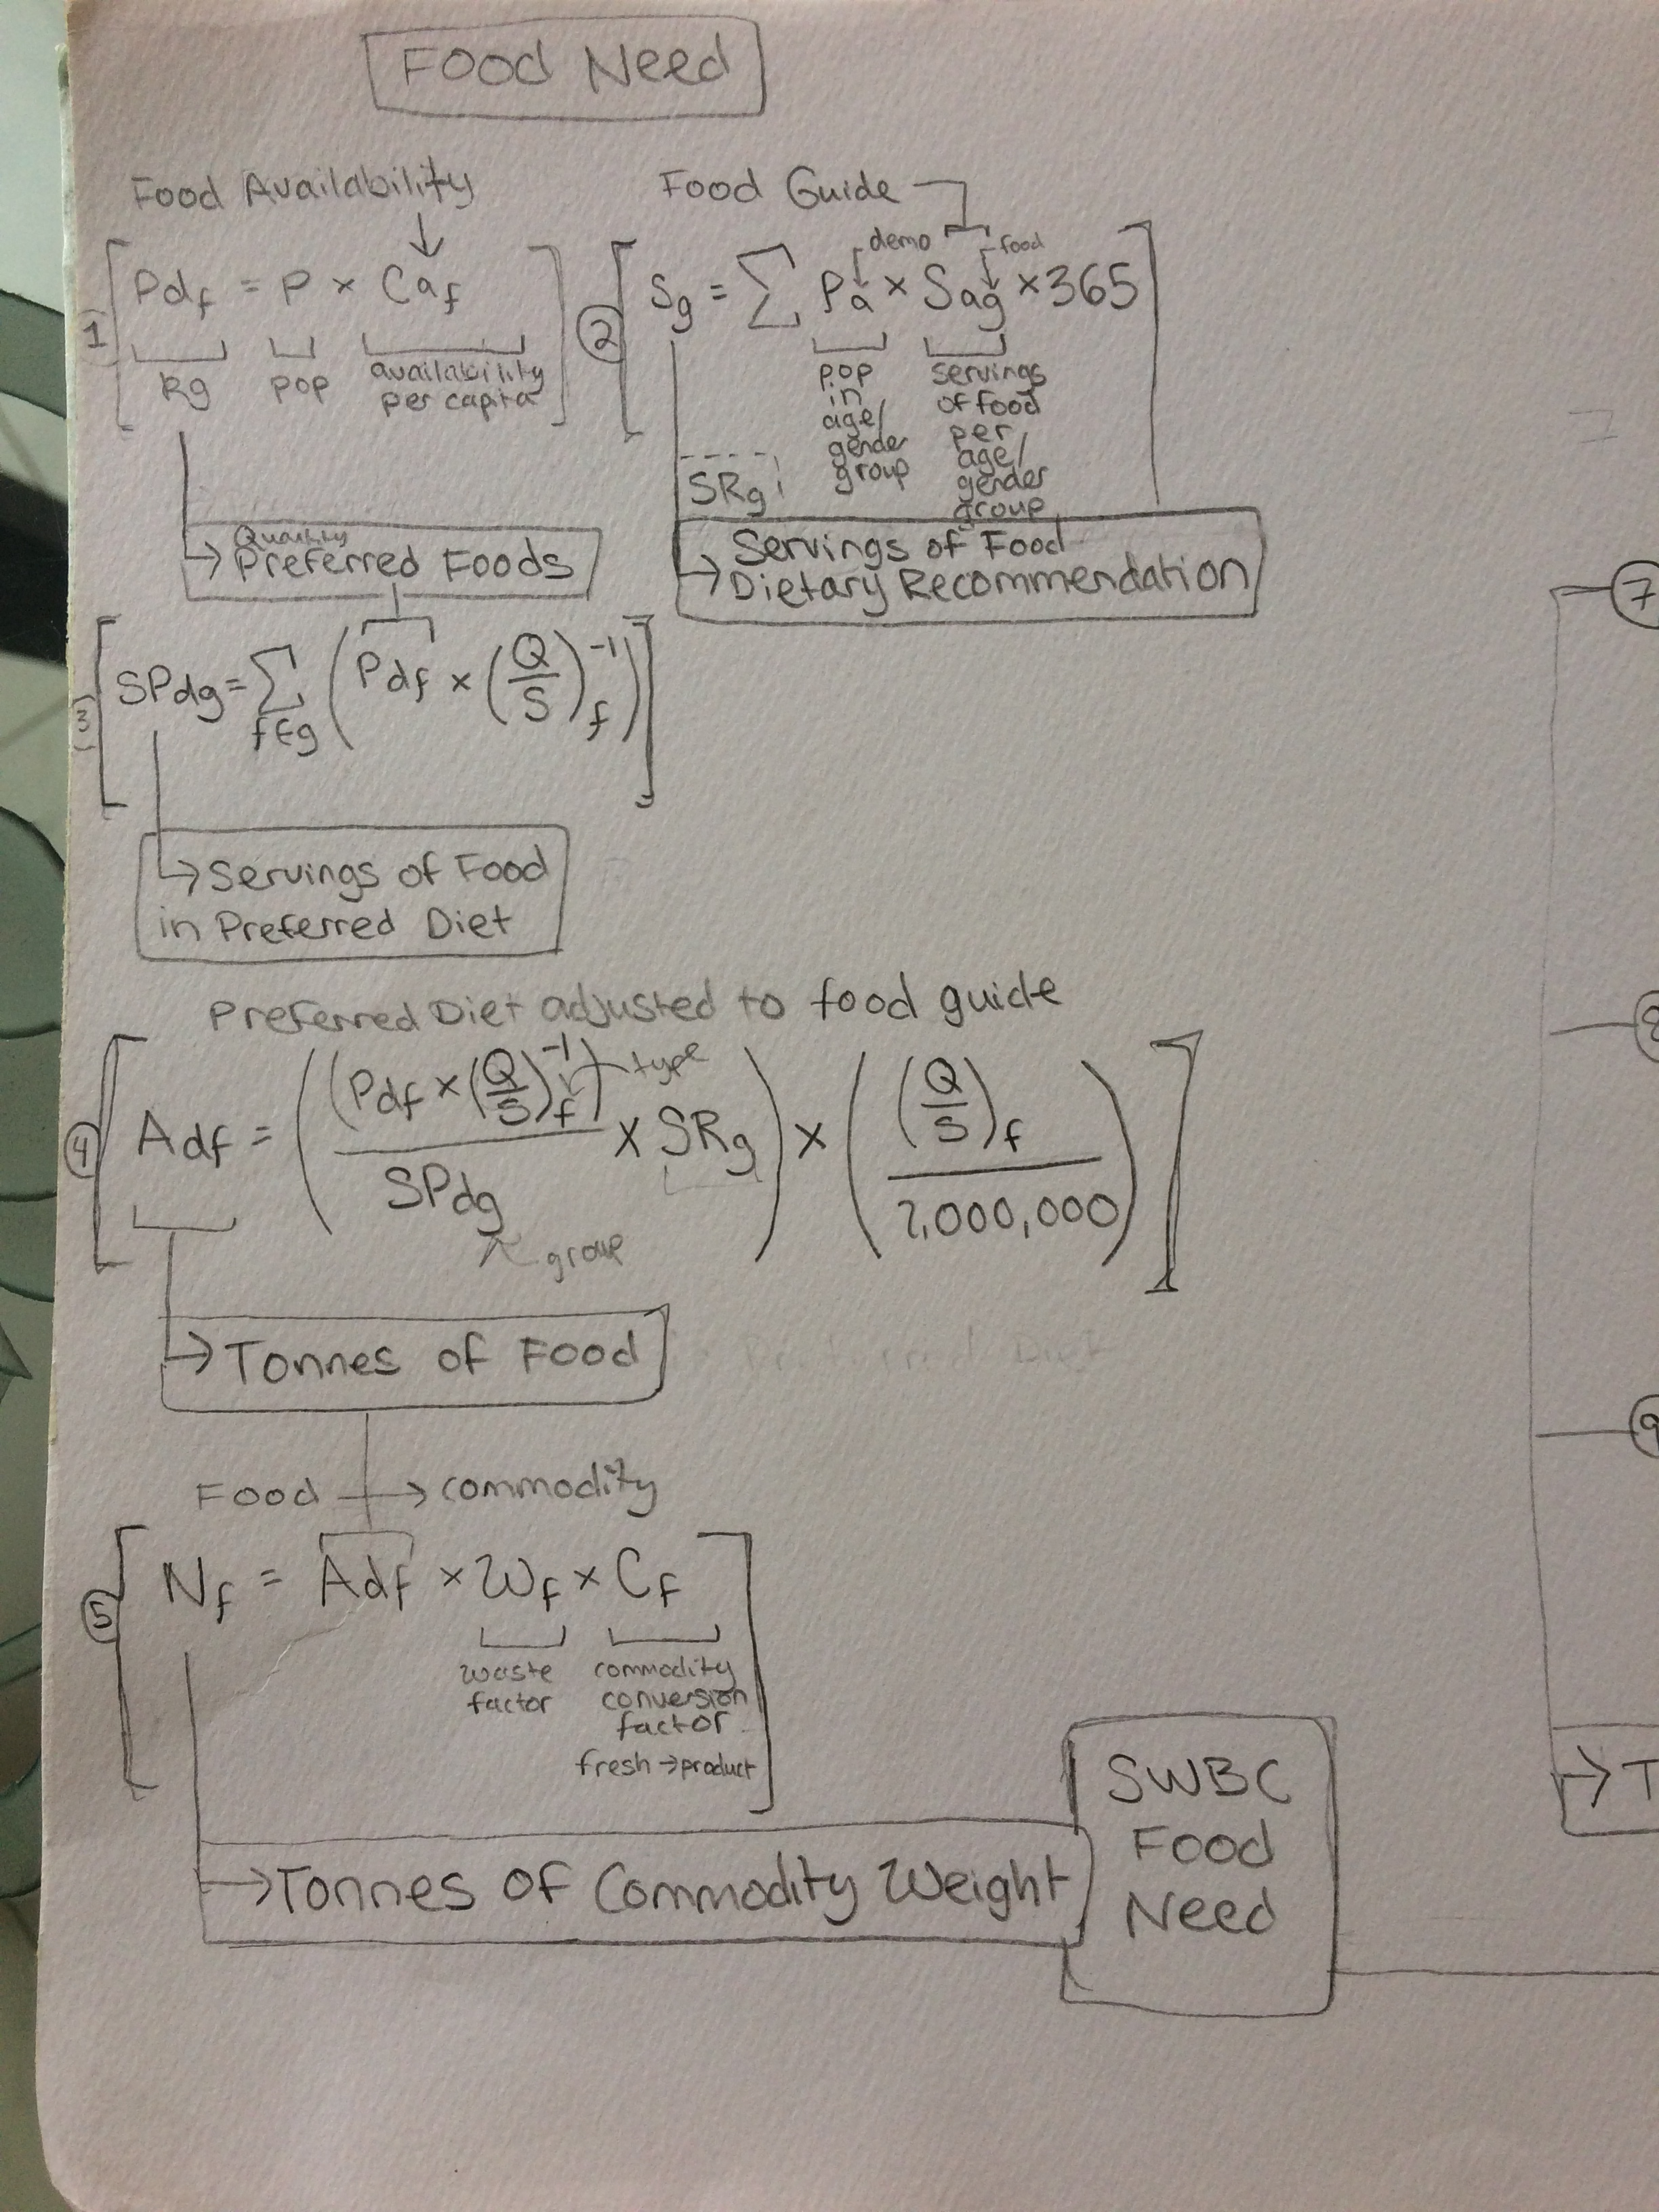 Food Need
Food Availability
↓
① [Pdf = P × Caf]
kg pop availability
per capita
→ Quantity
Preferred Foods
Food Guide
demo food
② [Sg = Σ Pa × Sag × 365]
pop
in
age/
gender
group
servings
of food
per
age/
gender
group
SRg
→ Servings of Food
Dietary Recommendation
③ [SPdg = Σ f∈g (Pdf × (Q/S)f⁻¹)]
→ Servings of Food
in Preferred Diet
Preferred Diet adjusted to food guide
④ [Adf = ((Pdf × (Q/S)f⁻¹) / SPdg × SRg) × ((Q/S)f / 1,000,000)]
type
group
→ Tonnes of Food
Food → commodity
⑤ [Nf = Adf × Wf × Cf]
waste
factor
commodity
conversion
factor
fresh → product
→ Tonnes of Commodity Weight
SWBC
Food
Need
⑦
⑧
⑨
→ T